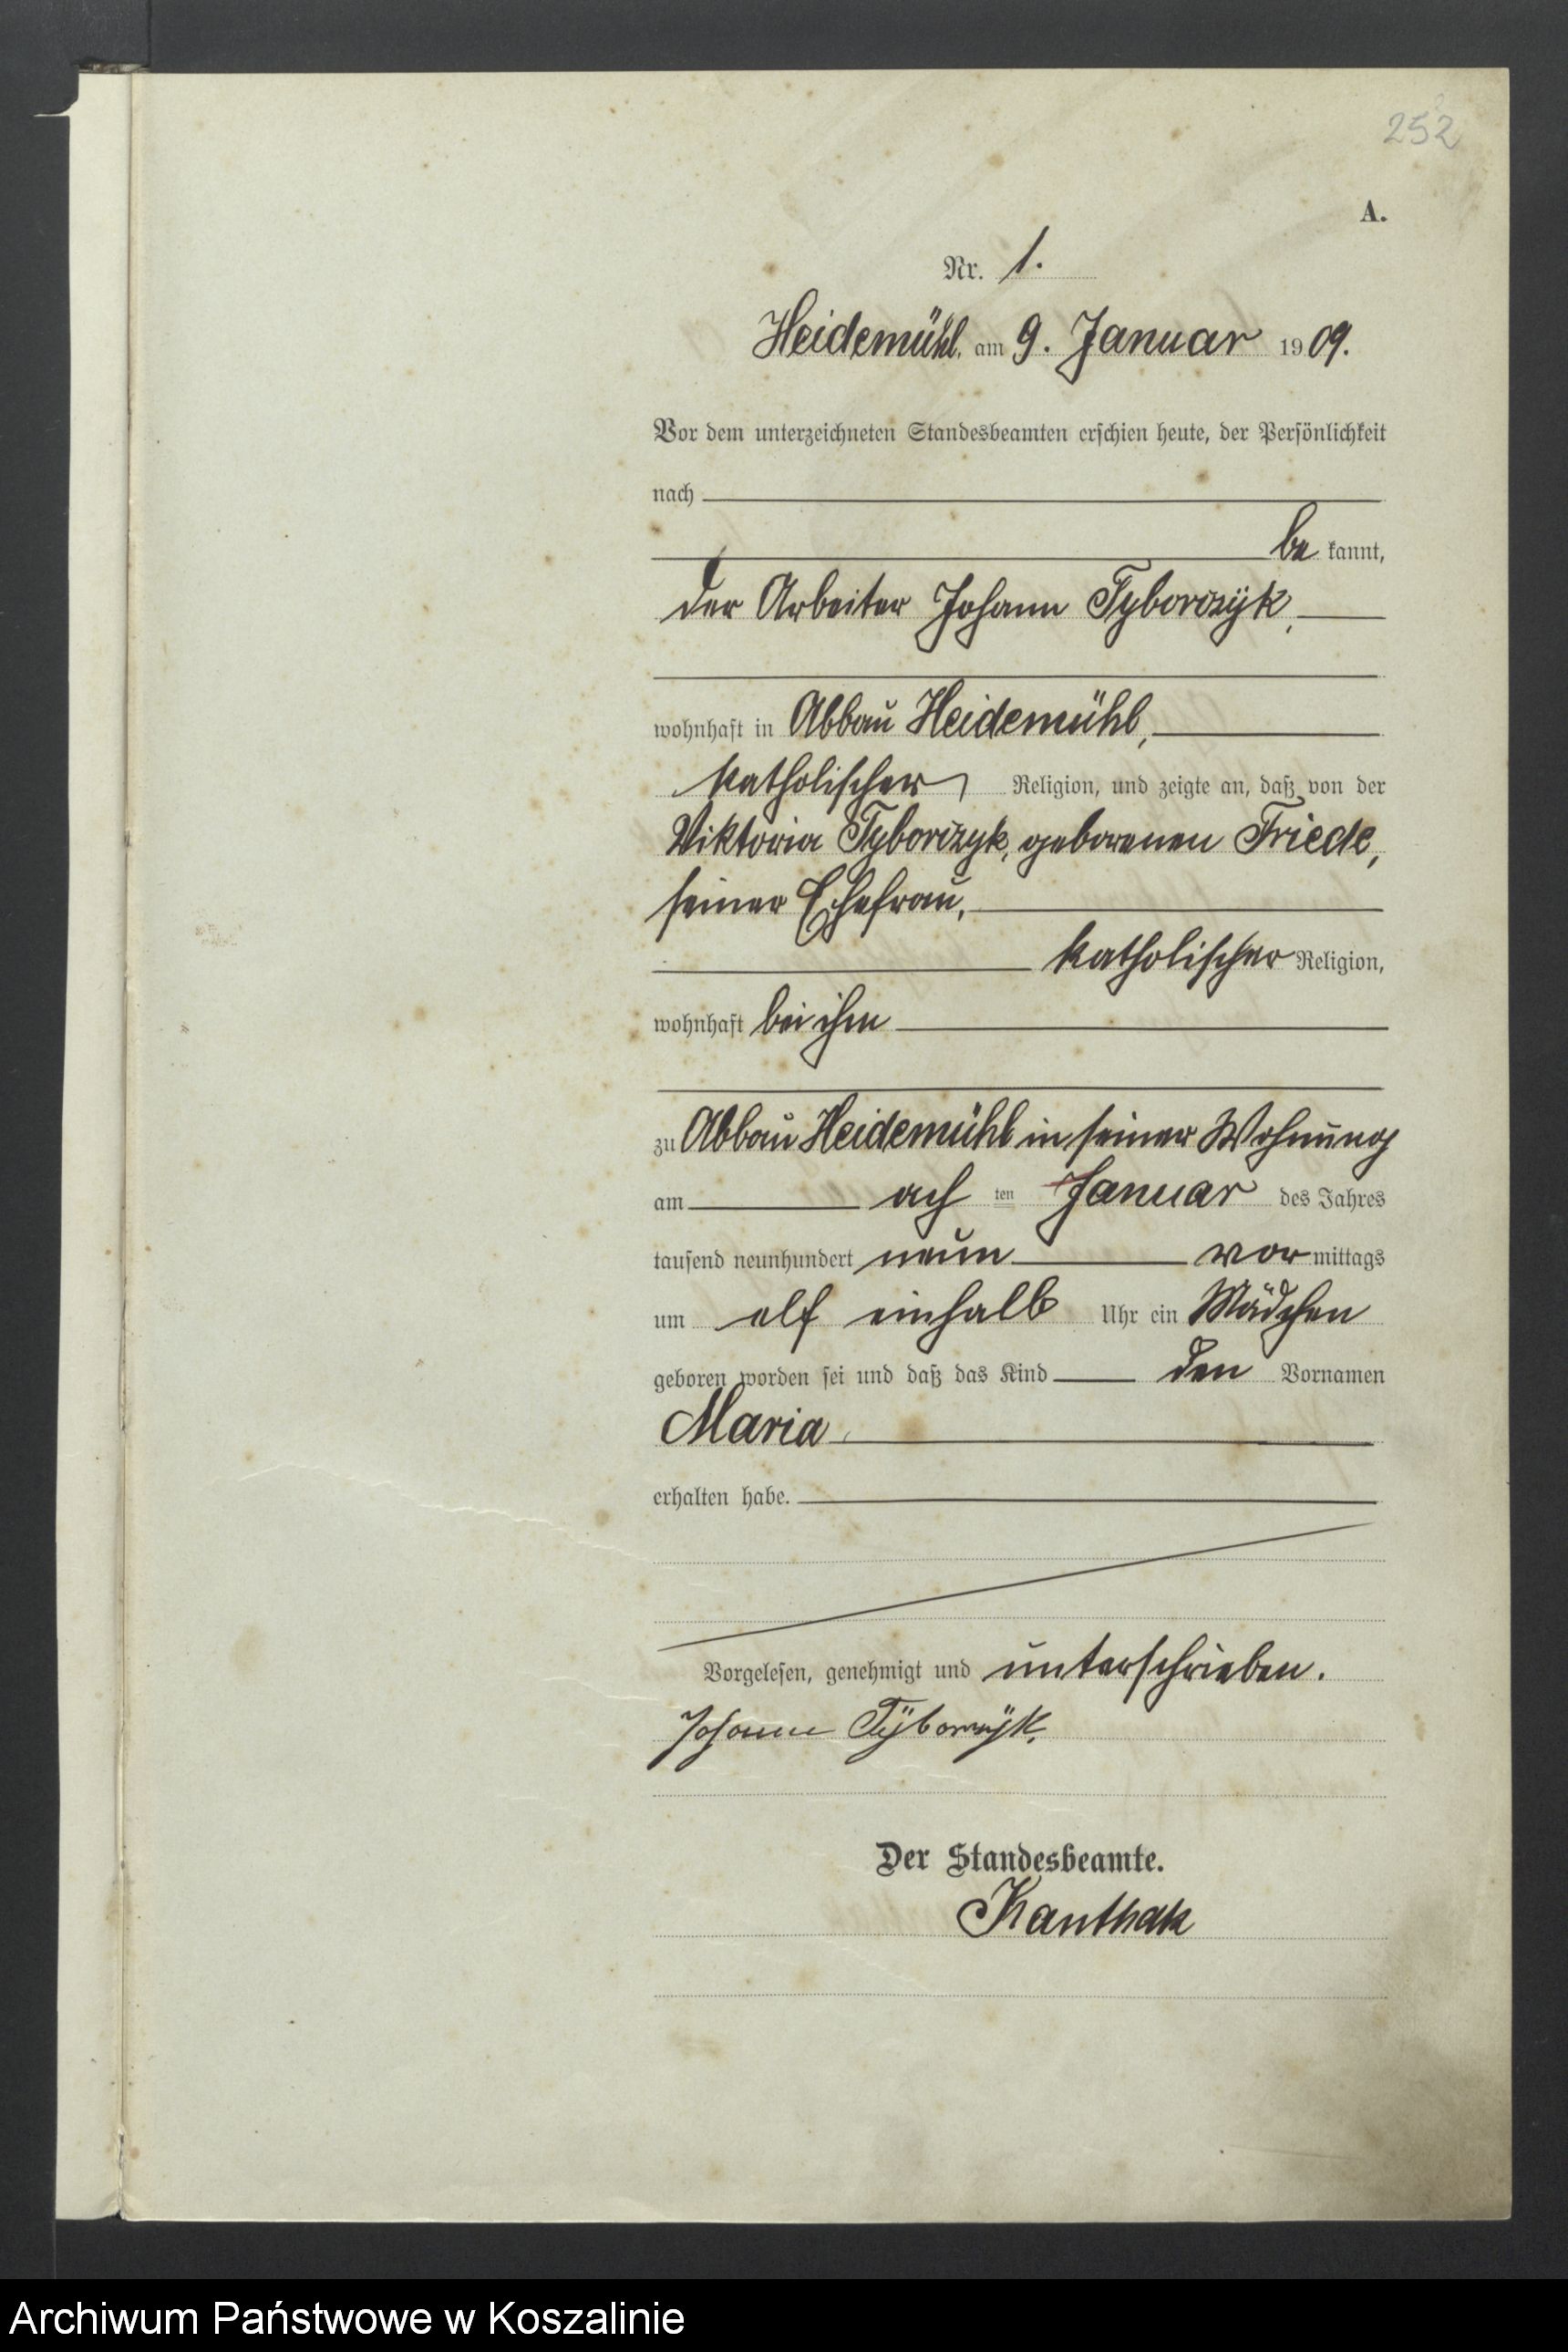 252
A.
Nr. 1.
Heidemühl, am 9. Januar 1909.
Vor dem unterzeichneten Standesbeamten erschien heute, der Persönlichkeit
nach
be kannt,
der Arbeiter Johann Tyborczÿk,
wohnhaft in Abbau Heidemühl,
katholischer Religion, und zeigte an, daß von der
Viktoria Tyborczyk, geborenen Friede,
seiner Ehefrau,
katholischer Religion,
wohnhaft bei ihm
zu Abbau Heidemühl in seiner Wohnung
am ach ten Januar des Jahres
tausend neunhundert neun vor mittags
um elf einhalb Uhr ein Mädchen
geboren worden sei und daß das Kind den Vornamen
Maria
erhalten habe.
Vorgelesen, genehmigt und unterschrieben.
Johann Tÿborczÿk.
Der Standesbeamte.
Kanthak
Archiwum Państwowe w Koszalinie